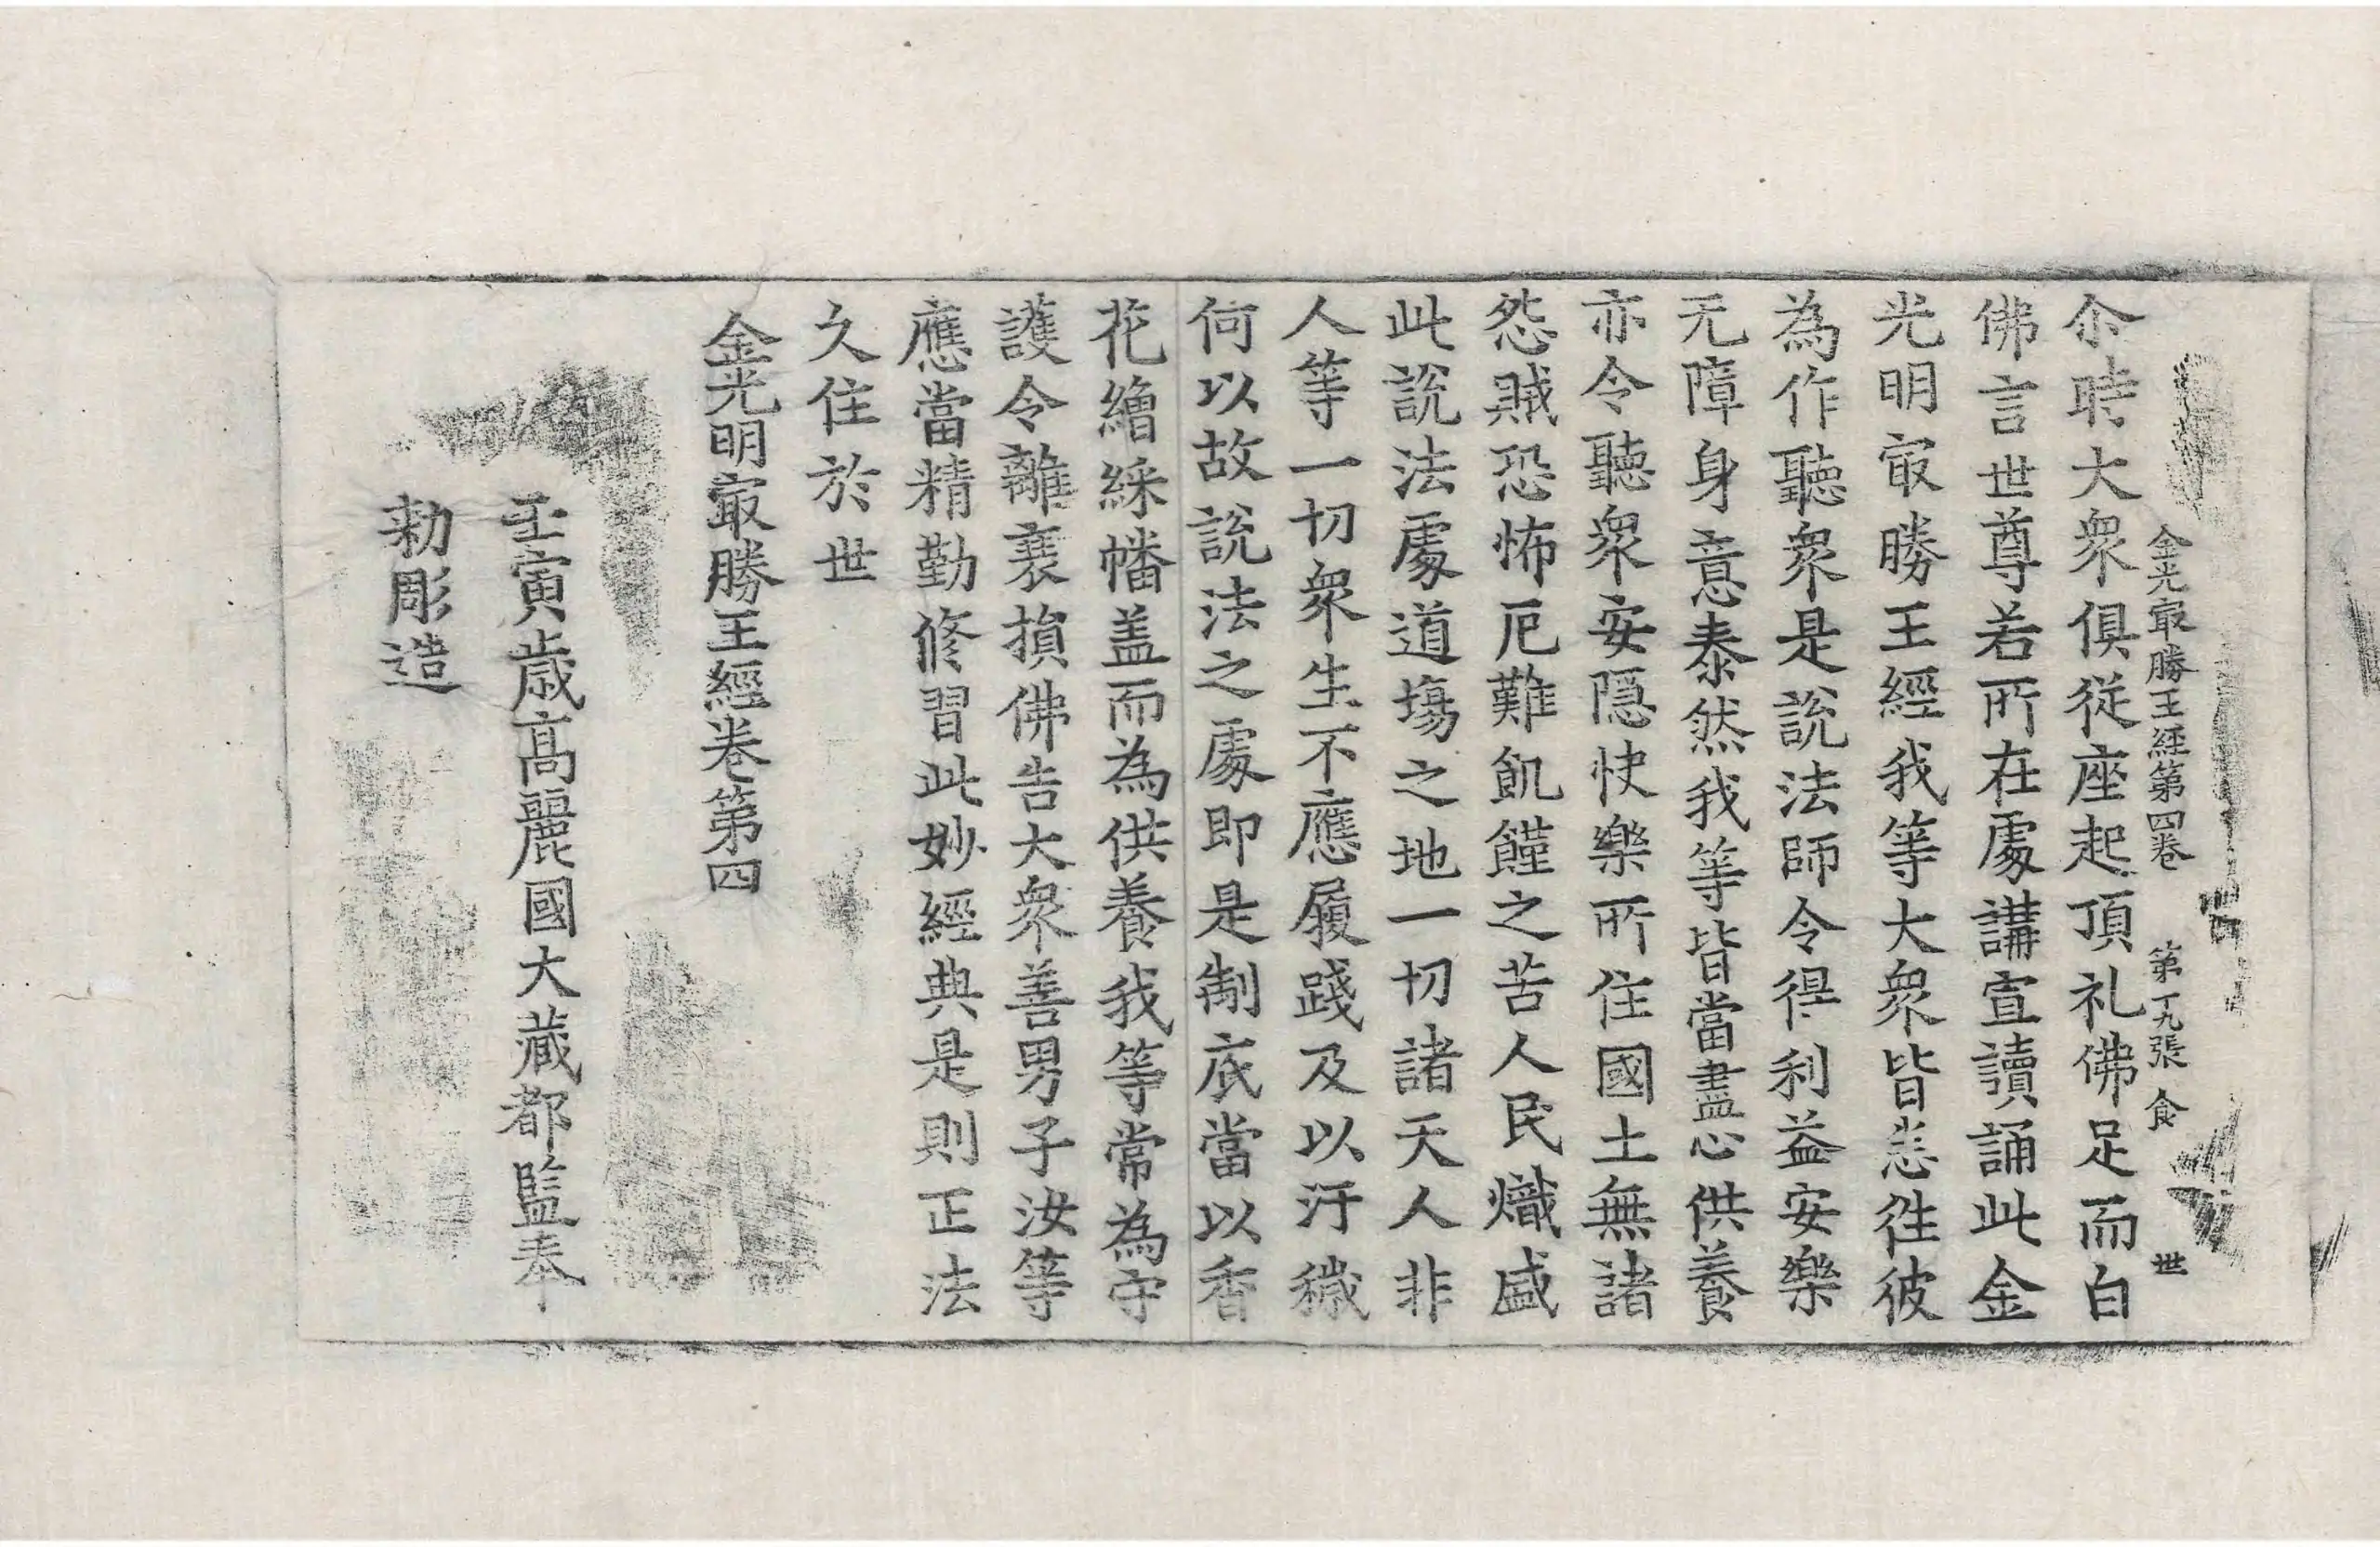 金光㝡勝王経第四卷 第十九張 食 世
尒時大衆俱從座起頂礼佛足而白
佛言世尊若所在處講宣讀誦此金
光明㝡勝王經我等大衆皆悉往彼
為作聽衆是說法師令得利益安樂
无障身意泰然我等皆當盡心供養
亦令聽衆安隱快樂所住國土無諸
怨賊恐怖厄難飢饉之苦人民熾盛
此說法處道場之地一切諸天人非
人等一切衆生不應履踐及以汙穢
何以故說法之處即是制底當以香
花繒綵幡盖而為供養我等常為守
護令離衰損佛告大衆善男子汝等
應當精勤修習此妙經典是則正法
久住於世
金光明㝡勝王經卷第四
壬寅歲高麗國大藏都監奉
勑彫造